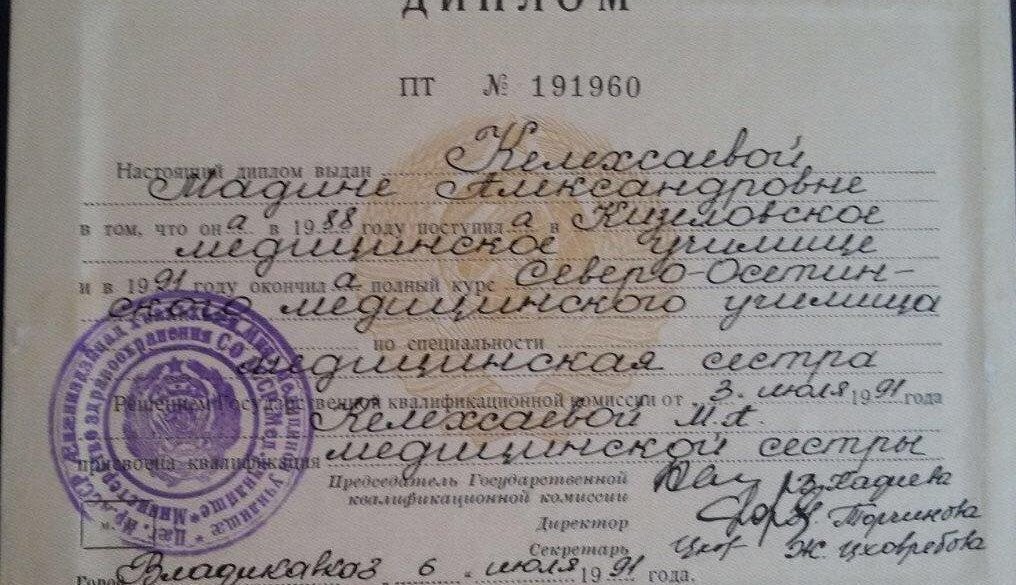 ДИПЛОМ
ПТ № 191960
Настоящий диплом выдан Келехсаевой
Мадине Александровне
в том, что она в 1988 году поступила в Кизеловское
медицинское училище
и в 1991 году окончила полный курс Северо-Осетин-
ского медицинского училища
по специальности
медицинская сестра
Решением Государственной квалификационной комиссии от 3 июля 1991 года
Келехсаевой М.А.
присвоена квалификация медицинской сестры
Председатель Государственной
квалификационной комиссии
Директор Торчинова
Секретарь Ж. Цховребова
Город Владикавказ 6 июля 1991 года.